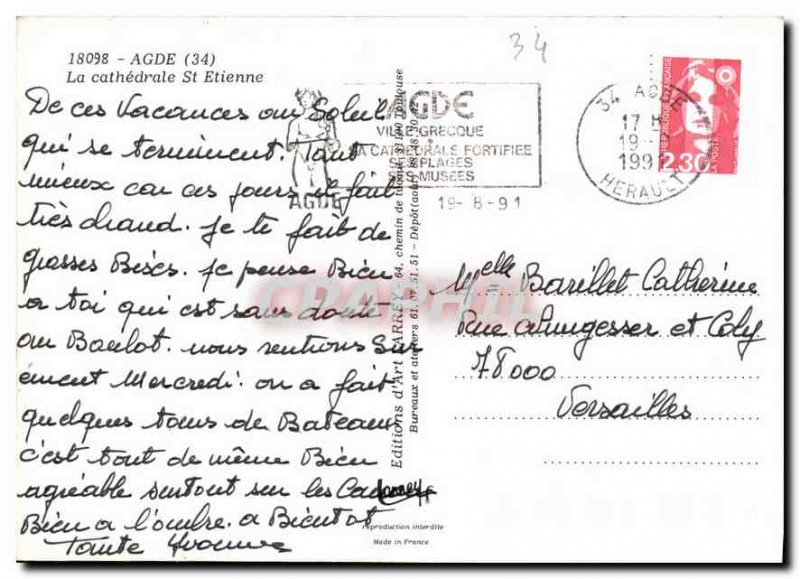 34
18098 - AGDE (34)
La cathédrale St Etienne
AGDE
VILLE GRECQUE
LA CATHEDRALE FORTIFIEE
SES PLAGES
SES MUSEES
AGDE
19-8-91
34 AGDE
17 H
19 -
199
HERAULT
REPUBLIQUE FRANCAISE
2,30
LA POSTE
De ces Vacances au Soleil
qui se terminent. Tant
mieux car ces jours il fait
très chaud. Je te fait de
grosses Bises. Je pense Bien
a toi qui est sans doute
au Boulot. nous rentrons Sur
ement Mercredi. on a fait
quelques tours de Bateau
c'est tout de même Bien
agréable surtout sur les
Bien a l'ombre. a Bientot
Tante Yvonne
Editions d'Art LARREY 64, chemin de Toulouse
Bureaux et ateliers 61.51.51 - Dépôt
larrey
reproduction interdite
Made in France
CPAPHIL
Melle Barillet Catherine
Rue et Coly
78000
Versailles